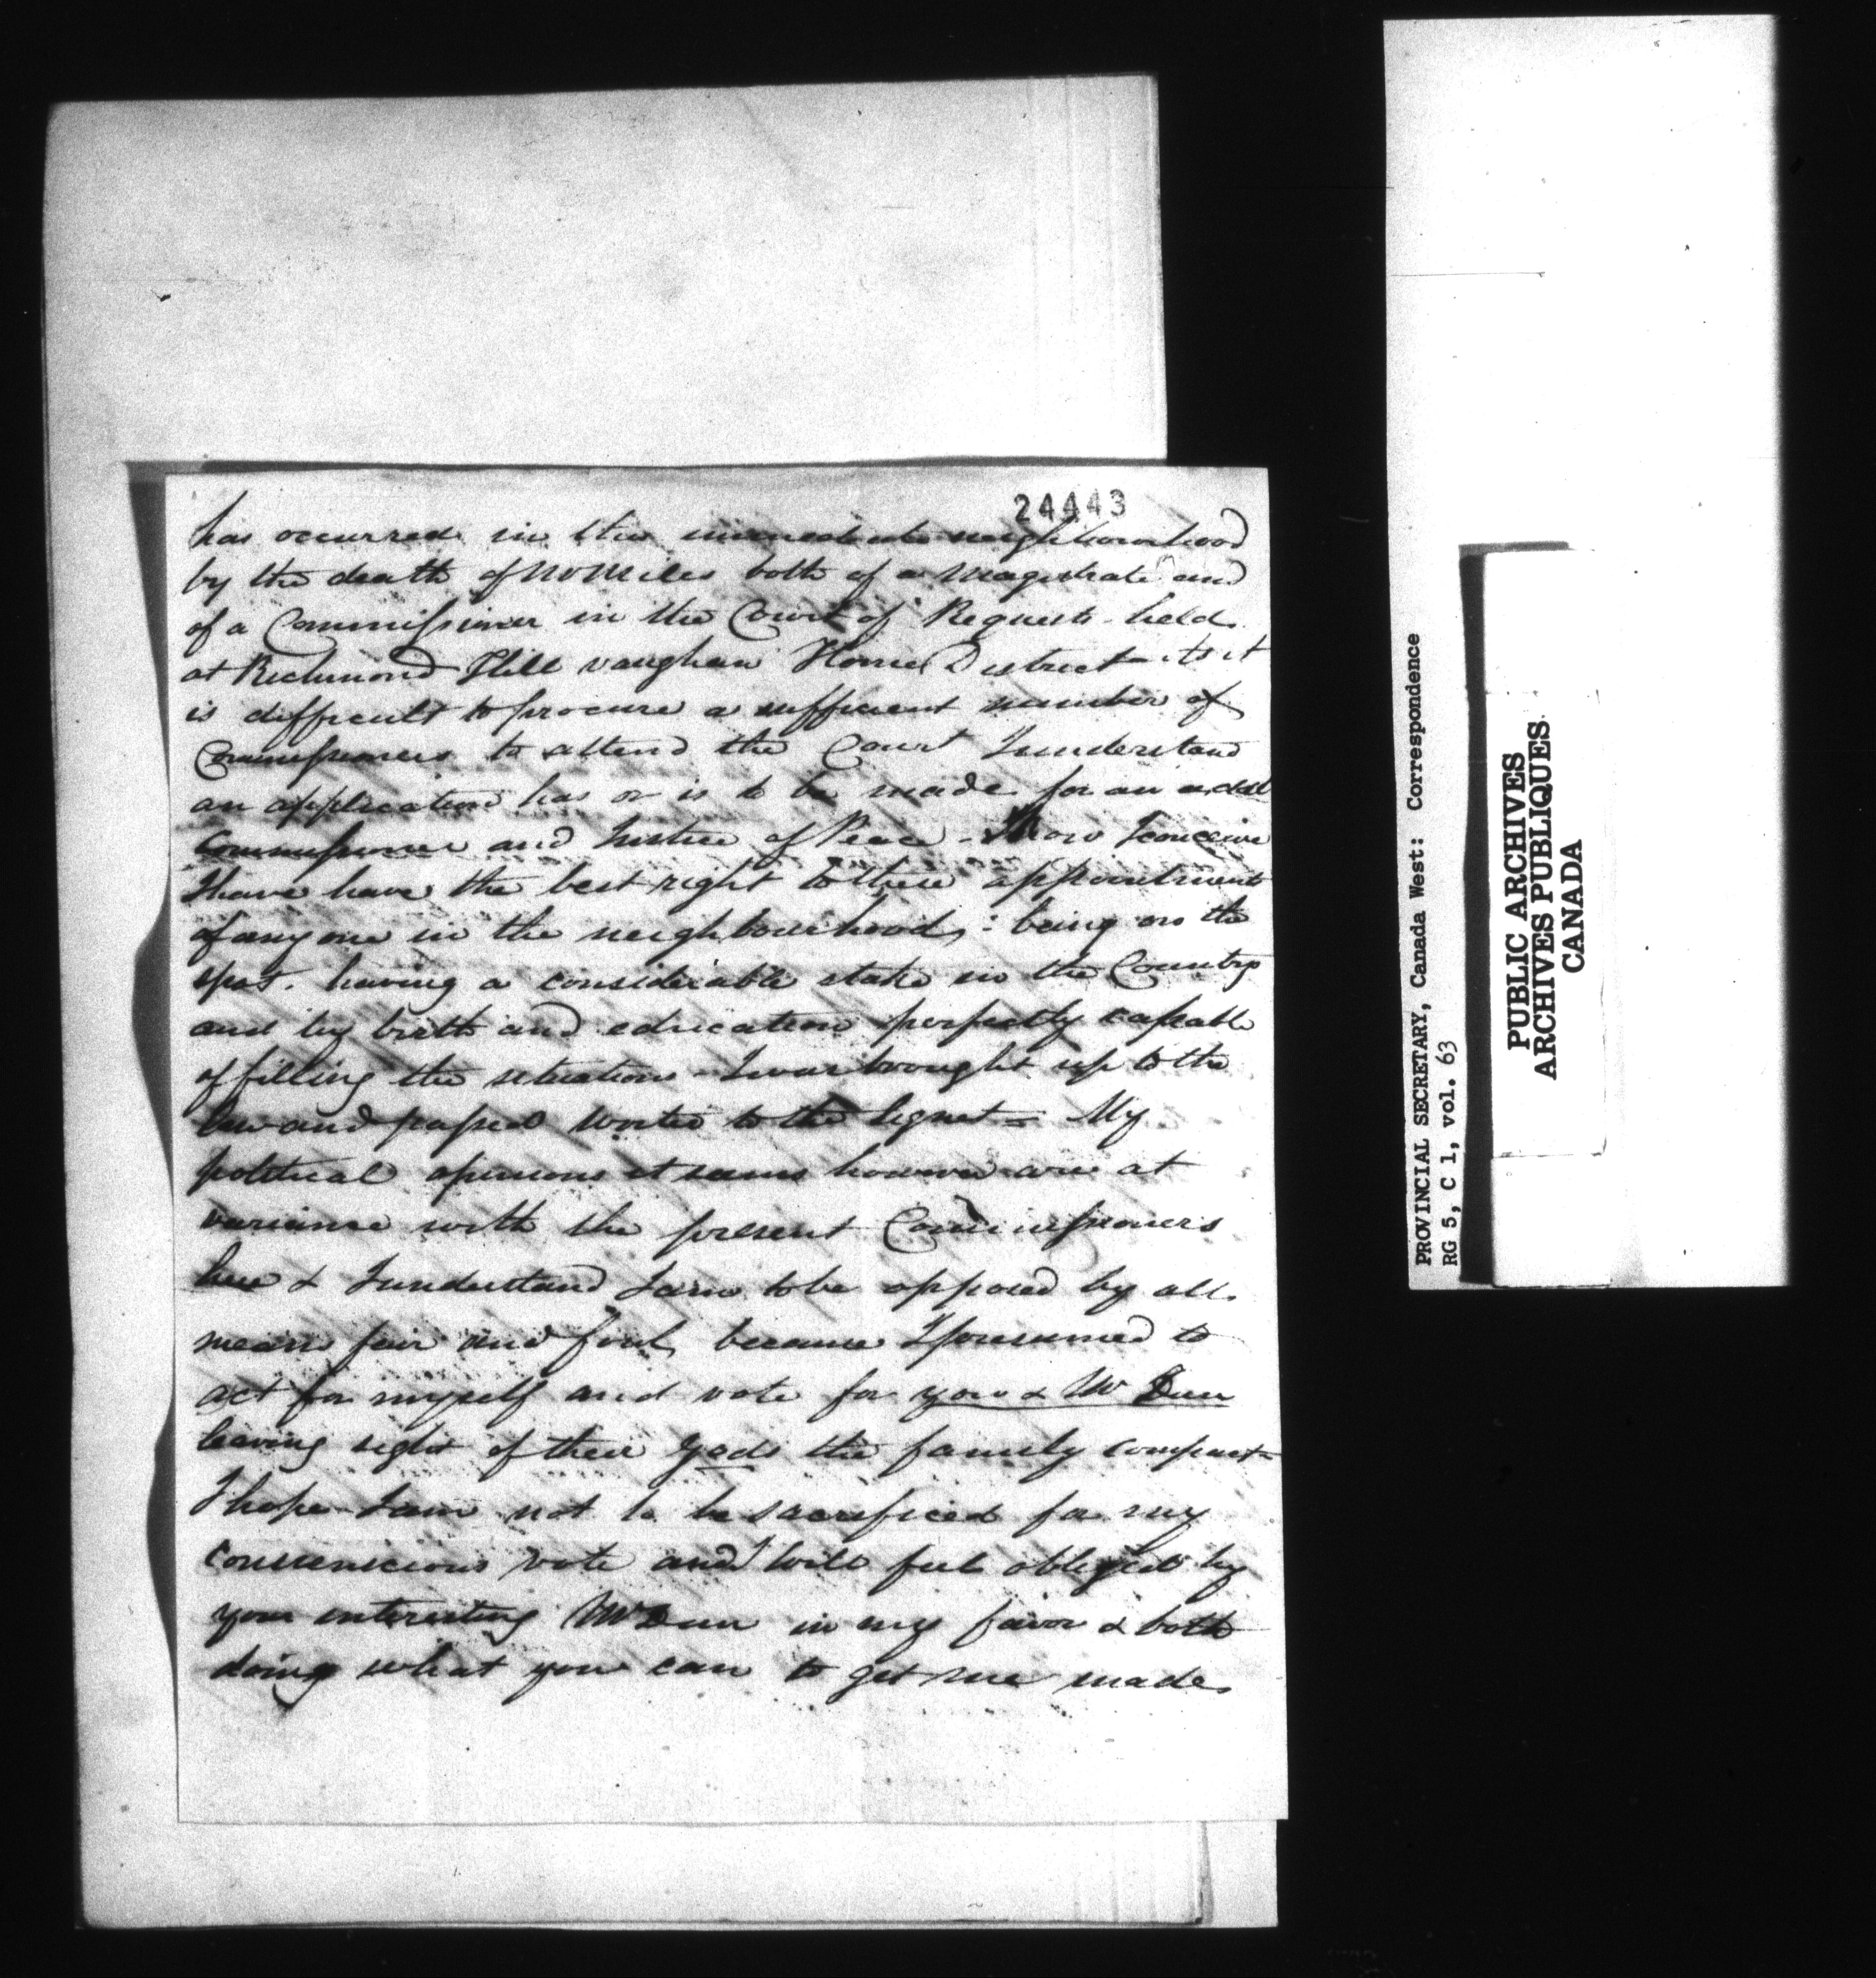 24443
has occurred in the immediate neighbourhood
by the death of Mr Miles both of a Magistrate and
of a Commissioner in the Court of Requests held
at Richmond Hill Vaughan Home District - As it
is difficult to procure a sufficient number of
Commissioners to attend the Court I understand
an application has or is to be made for an addl
Commissioner and Justice of Peace - Now I conceive
I have have the best right to these appointments
of any one in the neighbourhood, : being on the
spot. having a considerable stake in the Country
and by birth and education perfectly capable
of filling the situations - I was brought up to the
law and passed writer to the Signet - My
political opinions it seems however are at
variance with the present Commissioners
here & I understand I am to be opposed by all
means fair and foul, because I presumed to
act for myself and vote for you & Mr Dunn
leaving sight of their Gods the family compact
I hope I am not to be sacrificed for my
consciencious vote and will feel obliged by
your interesting Mr Dunn in my favor & both
doing what you can to get me made
PROVINCIAL SECRETARY, Canada West: Correspondence
RG 5, C 1, vol. 63
PUBLIC ARCHIVES
ARCHIVES PUBLIQUES
CANADA